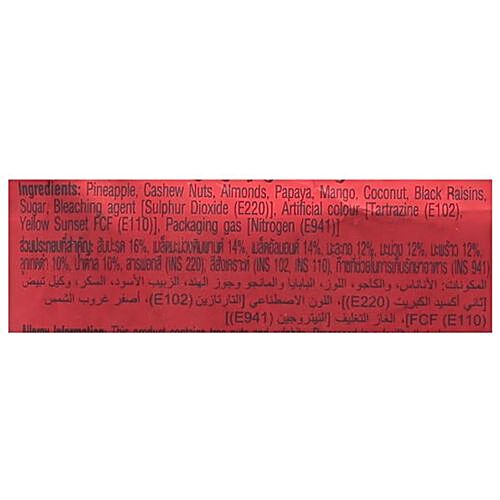 Ingredients: Pineapple, Cashew Nuts, Almonds, Papaya, Mango, Coconut, Black Raisins,
Sugar, Bleaching agent [Sulphur Dioxide (E220)], Artificial colour [Tartrazine (E102),
Yellow Sunset FCF (E110)], Packaging gas [Nitrogen (E941)]
ส่วนประกอบที่สำคัญ: สับปะรด 16%, เมล็ดมะม่วงหิมพานต์ 14%, เมล็ดอัลมอนด์ 14%, มะละกอ 12%, มะม่วง 12%, มะพร้าว 12%,
ลูกเกดดำ 10%, น้ำตาล 10%, สารฟอกสี (INS 220); สีสังเคราะห์ (INS 102, INS 110), ก๊าซที่ช่วยในการเก็บรักษาอาหาร (INS 941)
المكونات: الأناناس، والكاجو، اللوز، البابايا والمانجو وجوز الهند، الزبيب الأسود، السكر، وكيل تبيض
[ثاني أكسيد الكبريت (E220)]، اللون الاصطناعي [التارتازين (E102)، أصفر غروب الشمس
FCF (E110)]، الغاز التغليف [النيتروجين (E941)]
Allergy Information: This product contains tree nuts and